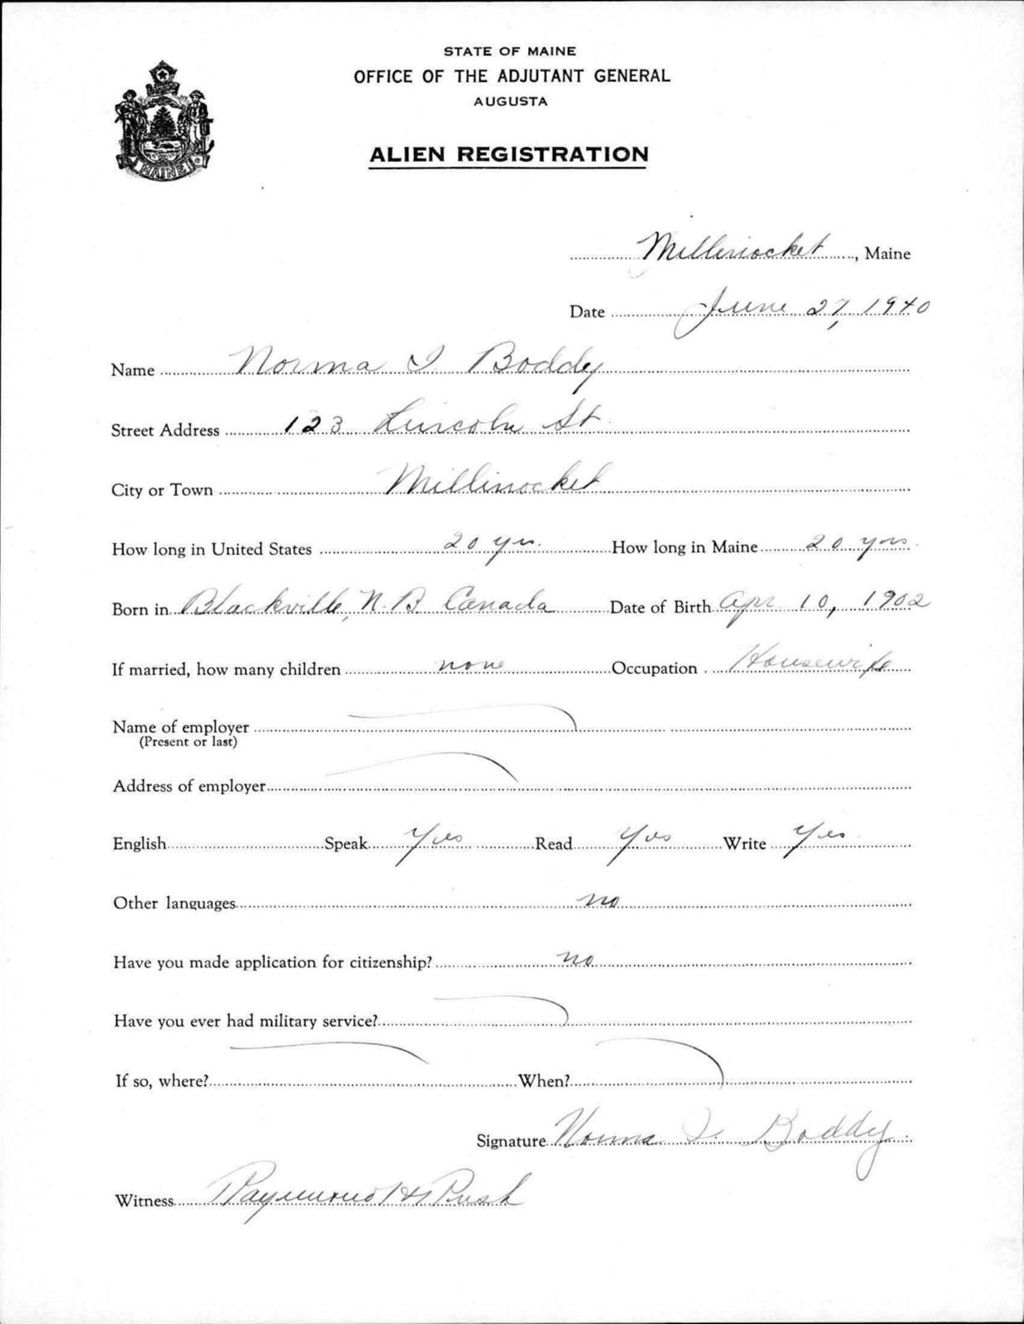 STATE OF MAINE
OFFICE OF THE ADJUTANT GENERAL
AUGUSTA
ALIEN REGISTRATION
MAINE
Millinocket, Maine
Date June 27, 1940
Name Norma I Boddy
Street Address 123 Lincoln St
City or Town Millinocket
How long in United States 20 yrs. How long in Maine 20 yrs
Born in Blackville, N.B. Canada Date of Birth Apr 10, 1902
If married, how many children none Occupation Housewife
Name of employer
(Present or last)
Address of employer
English Speak Yes Read Yes Write Yes
Other languages no
Have you made application for citizenship? no
Have you ever had military service?
If so, where? When?
Signature Norma I. Boddy
Witness Raymond H Rush